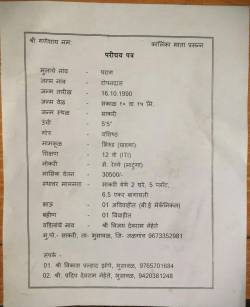 श्री गणेशाय नमः कालिका माता प्रसन्न
परीचय पत्र
मुलाचे नांव - पराग
जन्म नांव -
जन्म तारीख - 16.10.1990
जन्म वेळ - सकाळ १० वा १५ मि.
जन्म स्थळ - साकरी
उंची - 5'5"
गोत्र - वशिष्ठ
मामकुळ -
शिक्षण - 12 वी (ITI)
नोकरी - म. रेल्वे
मासिक वेतन - 30500/-
स्थावर मालमत्ता - साकरी येथे 2 घरे, 5 प्लॉट,
6.5 एकर बागायती
भाऊ - 01 अविवाहीत (बी.ई मेकॅनिकल)
बहीण - 01 विवाहीत
वडिलांचे नांव - श्री विजय देवराम नेहेते
मु.पो.- साकरी, ता- भुसावळ, जि- जळगांव 9673352981
संपर्क -
01. श्री विकास प्रल्हाद झोपे, भुसावळ, 9765701684
02. श्री. प्रदिप देवराम नेहेते, भुसावळ, 9420381248